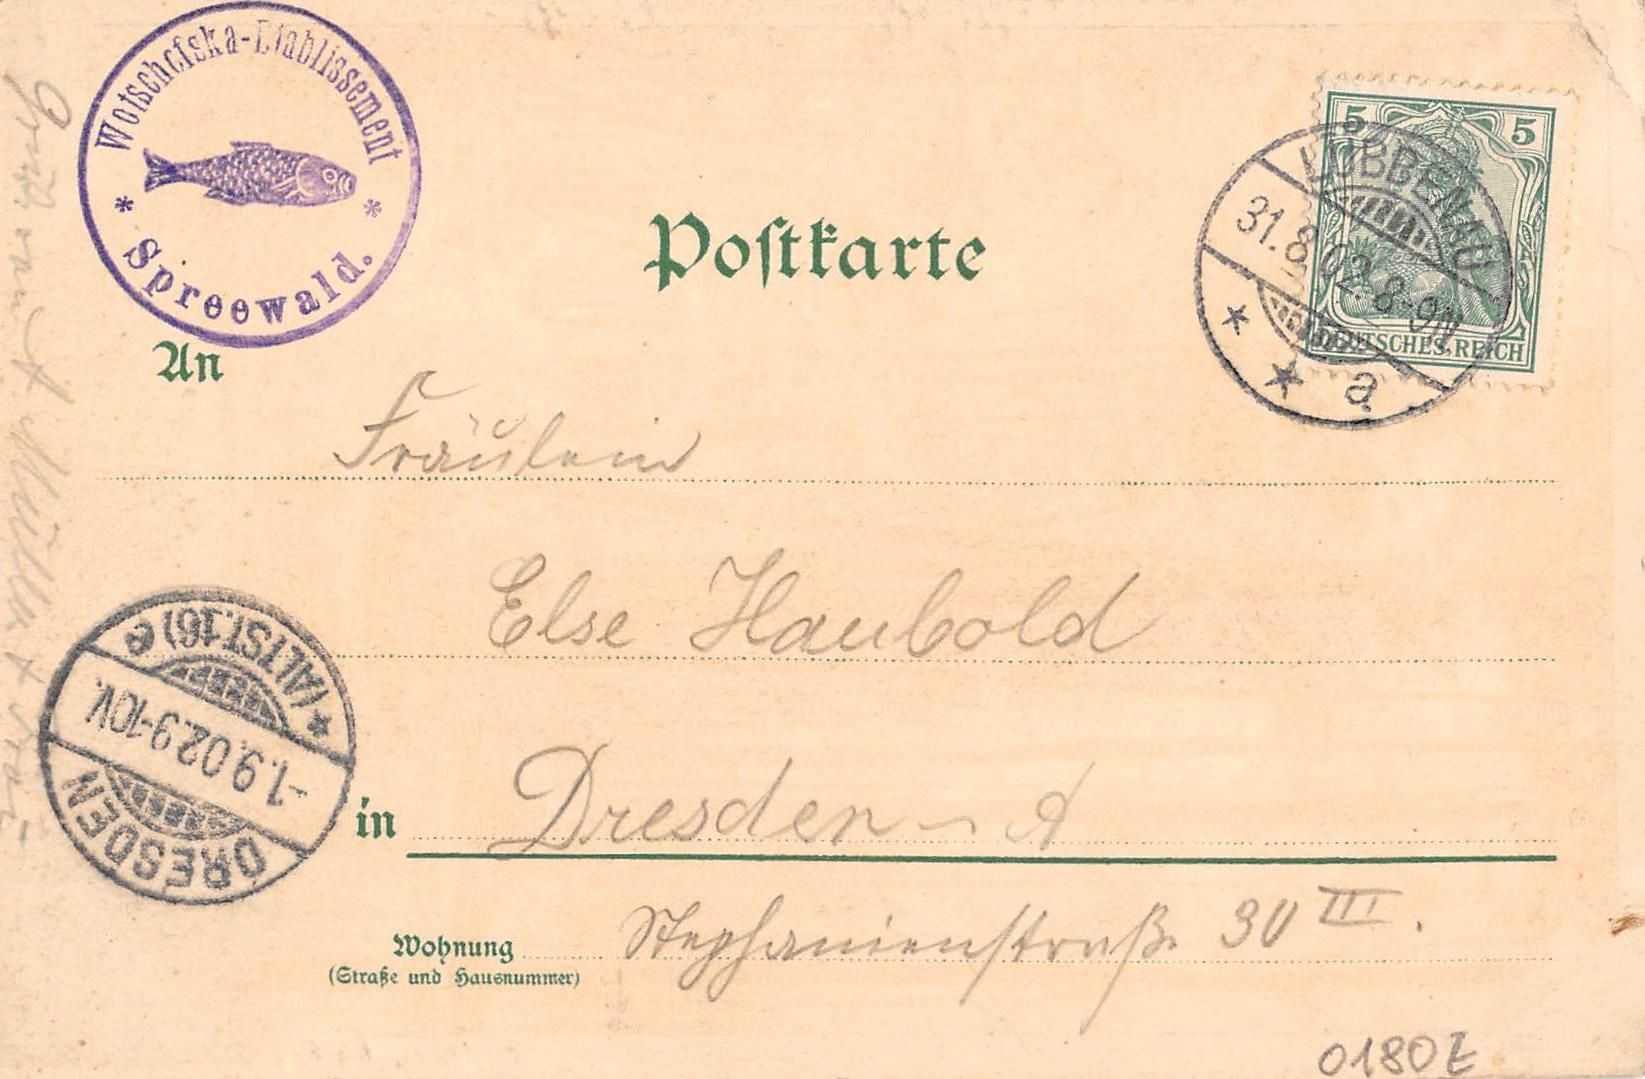 Wotschofska-Etablissement
* Spreewald. *
5 5
DEUTSCHES REICH
LÜBBENAU
31.8.02. 8-9N
* * a
Postkarte
An
Fräulein
Else Haubold
in Dresden-A
Wohnung Stephanienstraße 30 III.
(Straße und Hausnummer)
DRESDEN
-1.9.02.9-10V.
* (ALTST.16) e
0180E